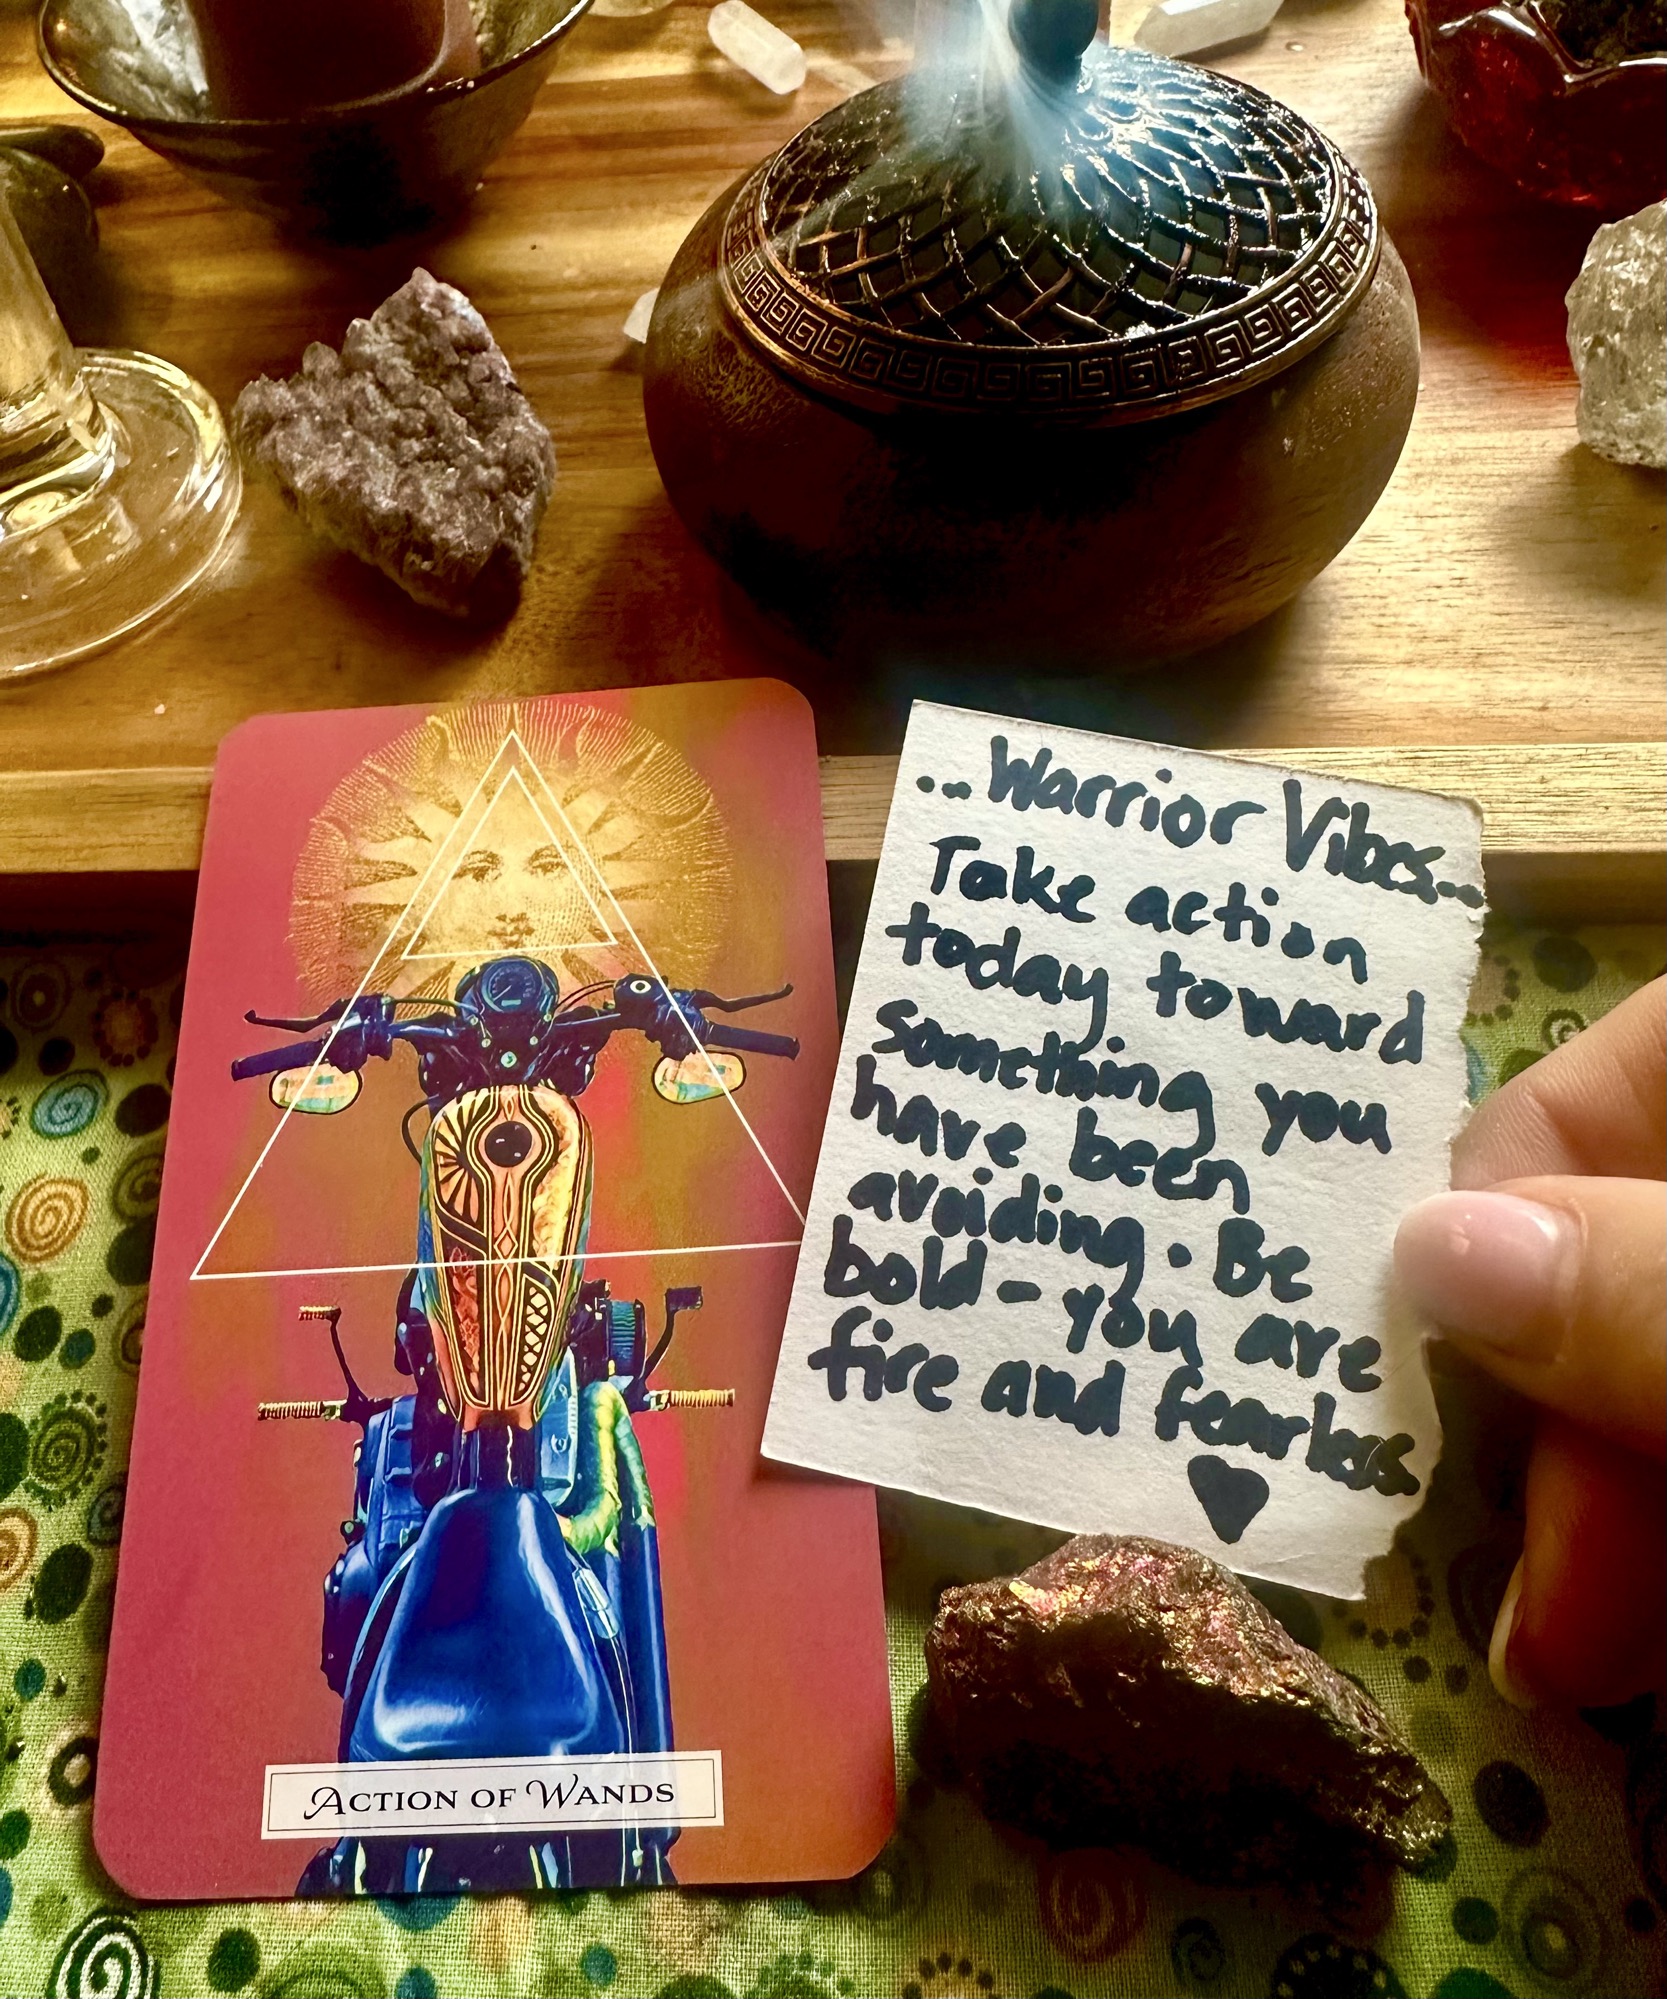 ...Warrior Vibes...
Take action
today toward
something you
have been
avoiding. Be
bold - you are
fire and fearless
ACTION OF WANDS